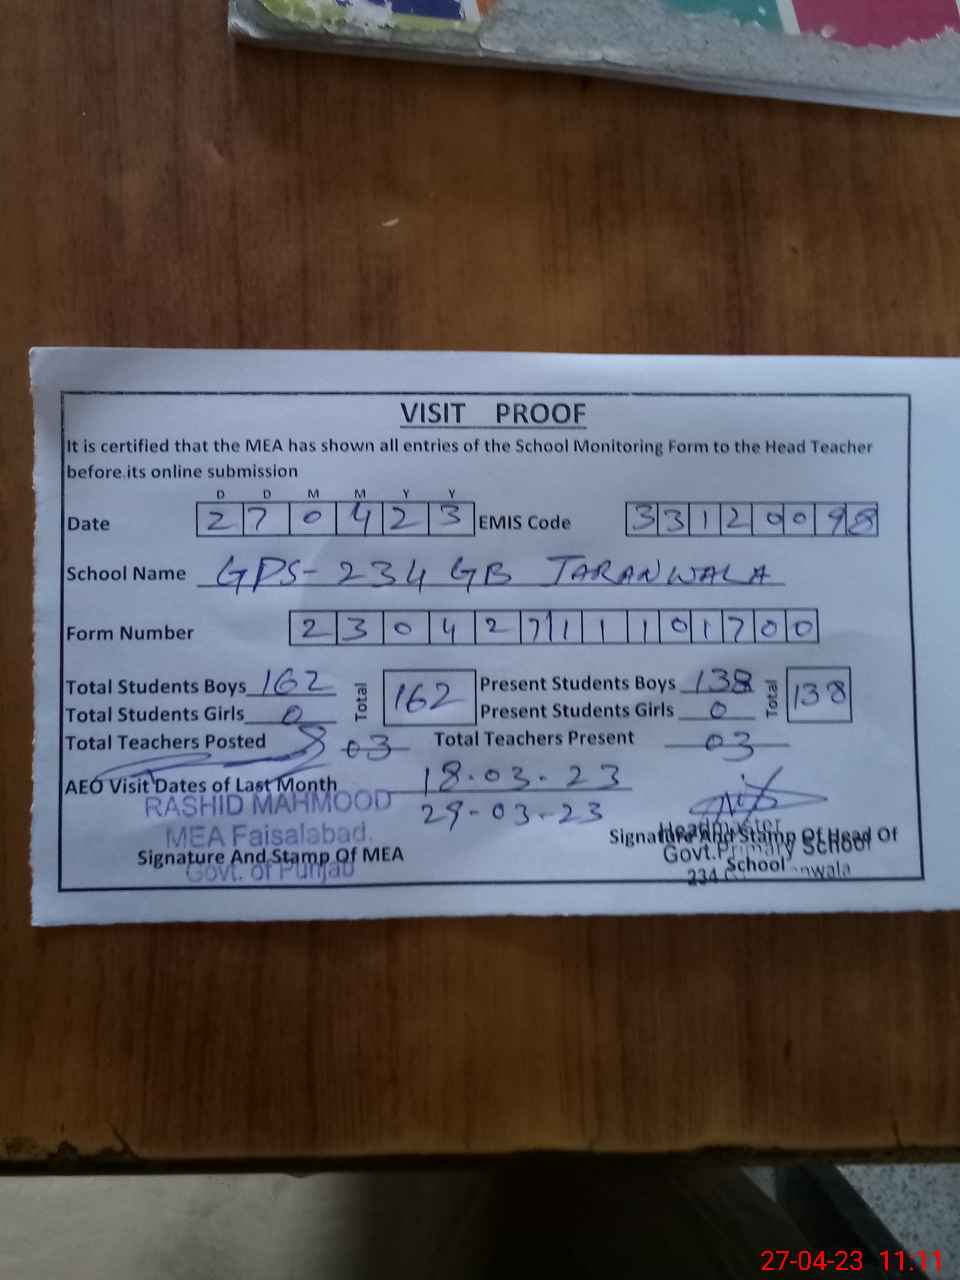 VISIT PROOF
It is certified that the MEA has shown all entries of the School Monitoring Form to the Head Teacher
before its online submission
D D M M Y Y
Date 2 7 0 4 2 3 EMIS Code 3 3 1 2 0 0 9 8
School Name GPS-234 GB TARANWALA
Form Number 2 3 0 4 2 7 1 1 1 0 1 7 0 0
Total Students Boys 162 Total 162 Present Students Boys 138 Total 138
Total Students Girls 0 Present Students Girls 0
Total Teachers Posted 03 Total Teachers Present 03
AEO Visit Dates of Last Month 18.03.23
29-03-23
RASHID MAHMOOD
MEA Faisalabad.
Govt. of Punjab
Signature And Stamp Of MEA
Headmaster
Govt.Primary School
234
Signature And Stamp Of Head Of
School
27-04-23 11:11